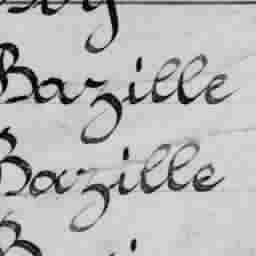 Bazille
Bazille